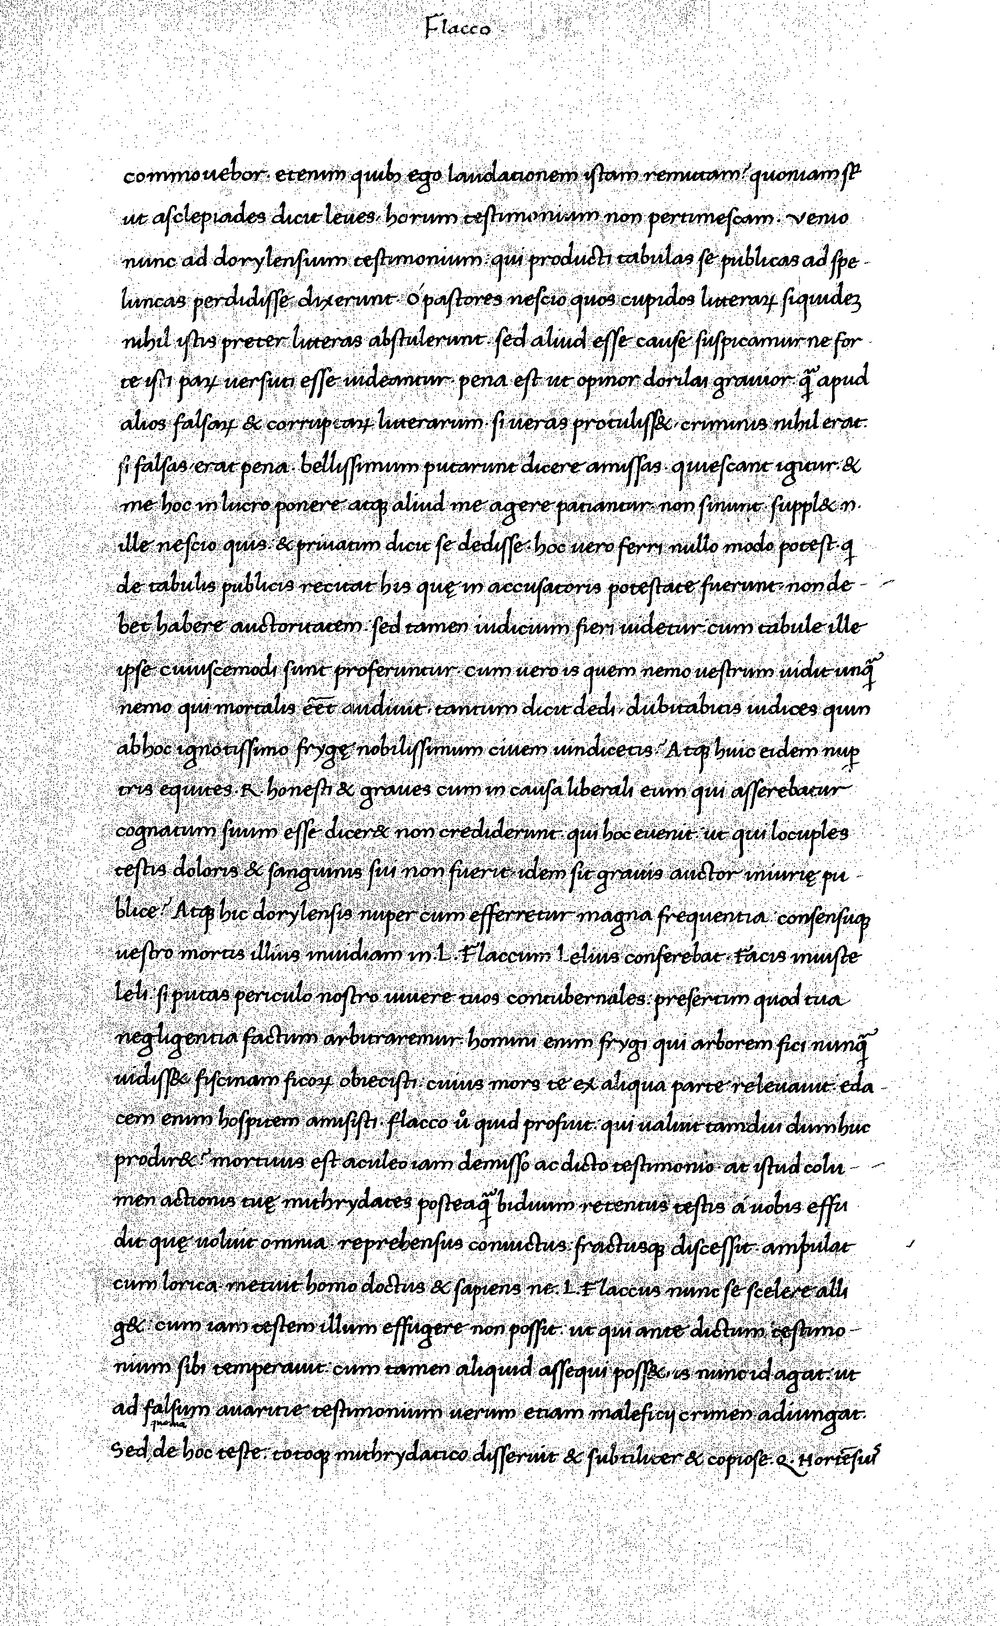 Flacco
commouebor. etenim quibꝫ ego laudationem istam remittam? quoniam sꝶ
ut asclepiades dicit leues. horum testimonium non pertimescam. Venio
nunc ad dorylensium testimonium. qui producti tabulas se publicas ad spe-
luncas perdidisse dixerunt. O pastores nescio quos cupidos litterarꝝ siquideꝫ
nihil istis preter litteras abstulerunt. sed aliud esse cause suspicamur ne for
te isti parꝝ uersuti esse uideantur. pena est ut opinor dorilai grauior. q̄ apud
alios falsarꝝ & corruptarꝝ litterarum. si ueras protuliss& criminis nihil erat.
si falsas erat pena. bellissimum putarunt dicere amissas. quiescant igitur. &
me hoc in lucro ponere atqꝫ aliud me agere patiantur. non sinunt. suppl& n.
ille nescio quis. & priuatim dicit se dedisse. hoc uero ferri nullo modo potest. q
de tabulis publicis recitat his quę in accusatoris potestate fuerunt. non de-
bet habere auctoritatem. sed tamen iudicium fieri uidetur. cum tabule ille
ipse cuiuscemodi sunt proferuntur. cum uero is quem nemo uestrum uidit unq̄
nemo qui mortalis eēt audiuit. tantum dicit dedi. dubitabitis iudices quin
ab hoc ignotissimo frygę nobilissimum ciuem uindicetis? Atqꝫ huic eidem nuꝑ
tris equites. R. honesti & graues cum in causa liberali eum qui asserebatur
cognatum suum esse dicer& non crediderunt. qui hoc euenit. ut qui locuples
testis doloris & sanguinis sui non fuerit. idem sit grauis auctor iniurię pu-
blice? Atqꝫ hic dorylensis nuper cum efferretur magna frequentia consensuqꝫ
uestro mortis illius inuidiam in. L. Flaccum Lelius conferebat. Facis iniuste
leli. si putas periculo nostro uiuere tuos contubernales. presertim quod tua
negligentia factum arbitraremur. homini enim frygi qui arborem fici nunq̄
uidiss& fiscinam ficorꝝ obiecisti. cuius mors te ex aliqua parte releuauit. eda-
cem enim hospitem amisisti. flacco ů quid profuit. qui ualuit tamdiu dum huc
prodir&? mortuus est aculeo iam demisso ac dicto testimonio. at istud colu-
men actionis tuę mithrydates posteaq̄ biduum retentus testis a uobis effu
dit quę uoluit omnia. reprehensus conuictus. fractusqꝫ discessit. ambulat
cum lorica. metuit homo doctus & sapiens ne. L. Flaccus nunc se scelere alli
g& cum iam testem illum effugere non possit. ut qui ante dictum testimo-
nium sibi temperauit. cum tamen aliquid assequi poss& is nunc id agat. ut
ad falsum auaritie testimonium uerum etiam maleficij crimen adiungat.
quoniā
Sed de hoc teste. totoqꝫ mithrydatico disseruit & subtiliter & copiose. Q. Hortēsius